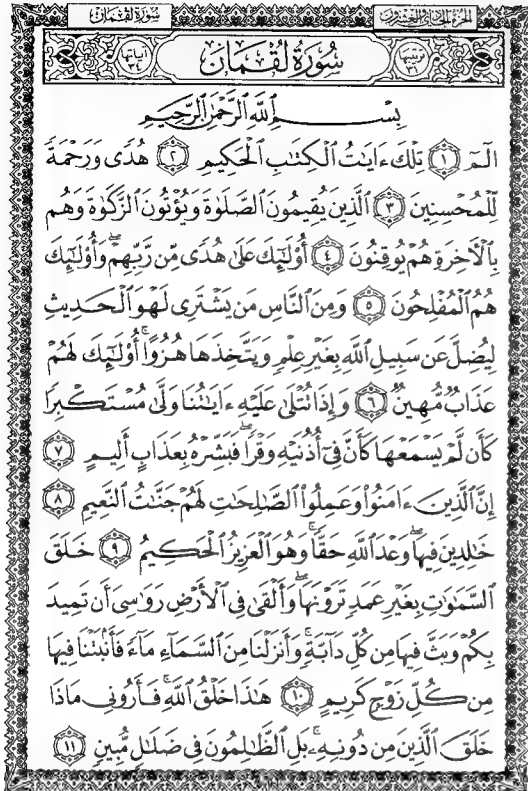 الجزء الحادي والعشرون سورة لقمان
ترتيبها ٣١ سُورَةُ لُقْمَانَ آياتها ٣٤
بِسْمِ اللَّهِ الرَّحْمَٰنِ الرَّحِيمِ
الٓمٓ ١ تِلْكَ ءَايَٰتُ ٱلْكِتَٰبِ ٱلْحَكِيمِ ٢ هُدًى وَرَحْمَةً
لِّلْمُحْسِنِينَ ٣ ٱلَّذِينَ يُقِيمُونَ ٱلصَّلَوٰةَ وَيُؤْتُونَ ٱلزَّكَوٰةَ وَهُم
بِٱلْءَاخِرَةِ هُمْ يُوقِنُونَ ٤ أُو۟لَٰٓئِكَ عَلَىٰ هُدًى مِّن رَّبِّهِمْ ۖ وَأُو۟لَٰٓئِكَ
هُمُ ٱلْمُفْلِحُونَ ٥ وَمِنَ ٱلنَّاسِ مَن يَشْتَرِى لَهْوَ ٱلْحَدِيثِ
لِيُضِلَّ عَن سَبِيلِ ٱللَّهِ بِغَيْرِ عِلْمٍ وَيَتَّخِذَهَا هُزُوًا ۚ أُو۟لَٰٓئِكَ لَهُمْ
عَذَابٌ مُّهِينٌ ٦ وَإِذَا تُتْلَىٰ عَلَيْهِ ءَايَٰتُنَا وَلَّىٰ مُسْتَكْبِرًا
كَأَن لَّمْ يَسْمَعْهَا كَأَنَّ فِىٓ أُذُنَيْهِ وَقْرًا ۖ فَبَشِّرْهُ بِعَذَابٍ أَلِيمٍ ٧
إِنَّ ٱلَّذِينَ ءَامَنُوا۟ وَعَمِلُوا۟ ٱلصَّٰلِحَٰتِ لَهُمْ جَنَّٰتُ ٱلنَّعِيمِ ٨
خَٰلِدِينَ فِيهَا ۖ وَعْدَ ٱللَّهِ حَقًّا ۚ وَهُوَ ٱلْعَزِيزُ ٱلْحَكِيمُ ٩ خَلَقَ
ٱلسَّمَٰوَٰتِ بِغَيْرِ عَمَدٍ تَرَوْنَهَا ۖ وَأَلْقَىٰ فِى ٱلْأَرْضِ رَوَٰسِىَ أَن تَمِيدَ
بِكُمْ وَبَثَّ فِيهَا مِن كُلِّ دَآبَّةٍ ۚ وَأَنزَلْنَا مِنَ ٱلسَّمَآءِ مَآءً فَأَنۢبَتْنَا فِيهَا
مِن كُلِّ زَوْجٍ كَرِيمٍ ١٠ هَٰذَا خَلْقُ ٱللَّهِ فَأَرُونِى مَاذَا
خَلَقَ ٱلَّذِينَ مِن دُونِهِۦ ۚ بَلِ ٱلظَّٰلِمُونَ فِى ضَلَٰلٍ مُّبِينٍ ١١